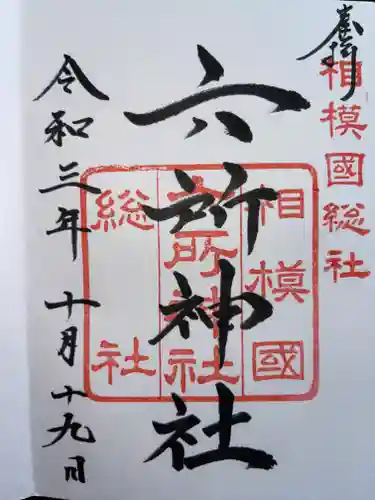 奉拝
相模國総社
六所神社
相模國
六所神社
総社
令和三年 十月十九日